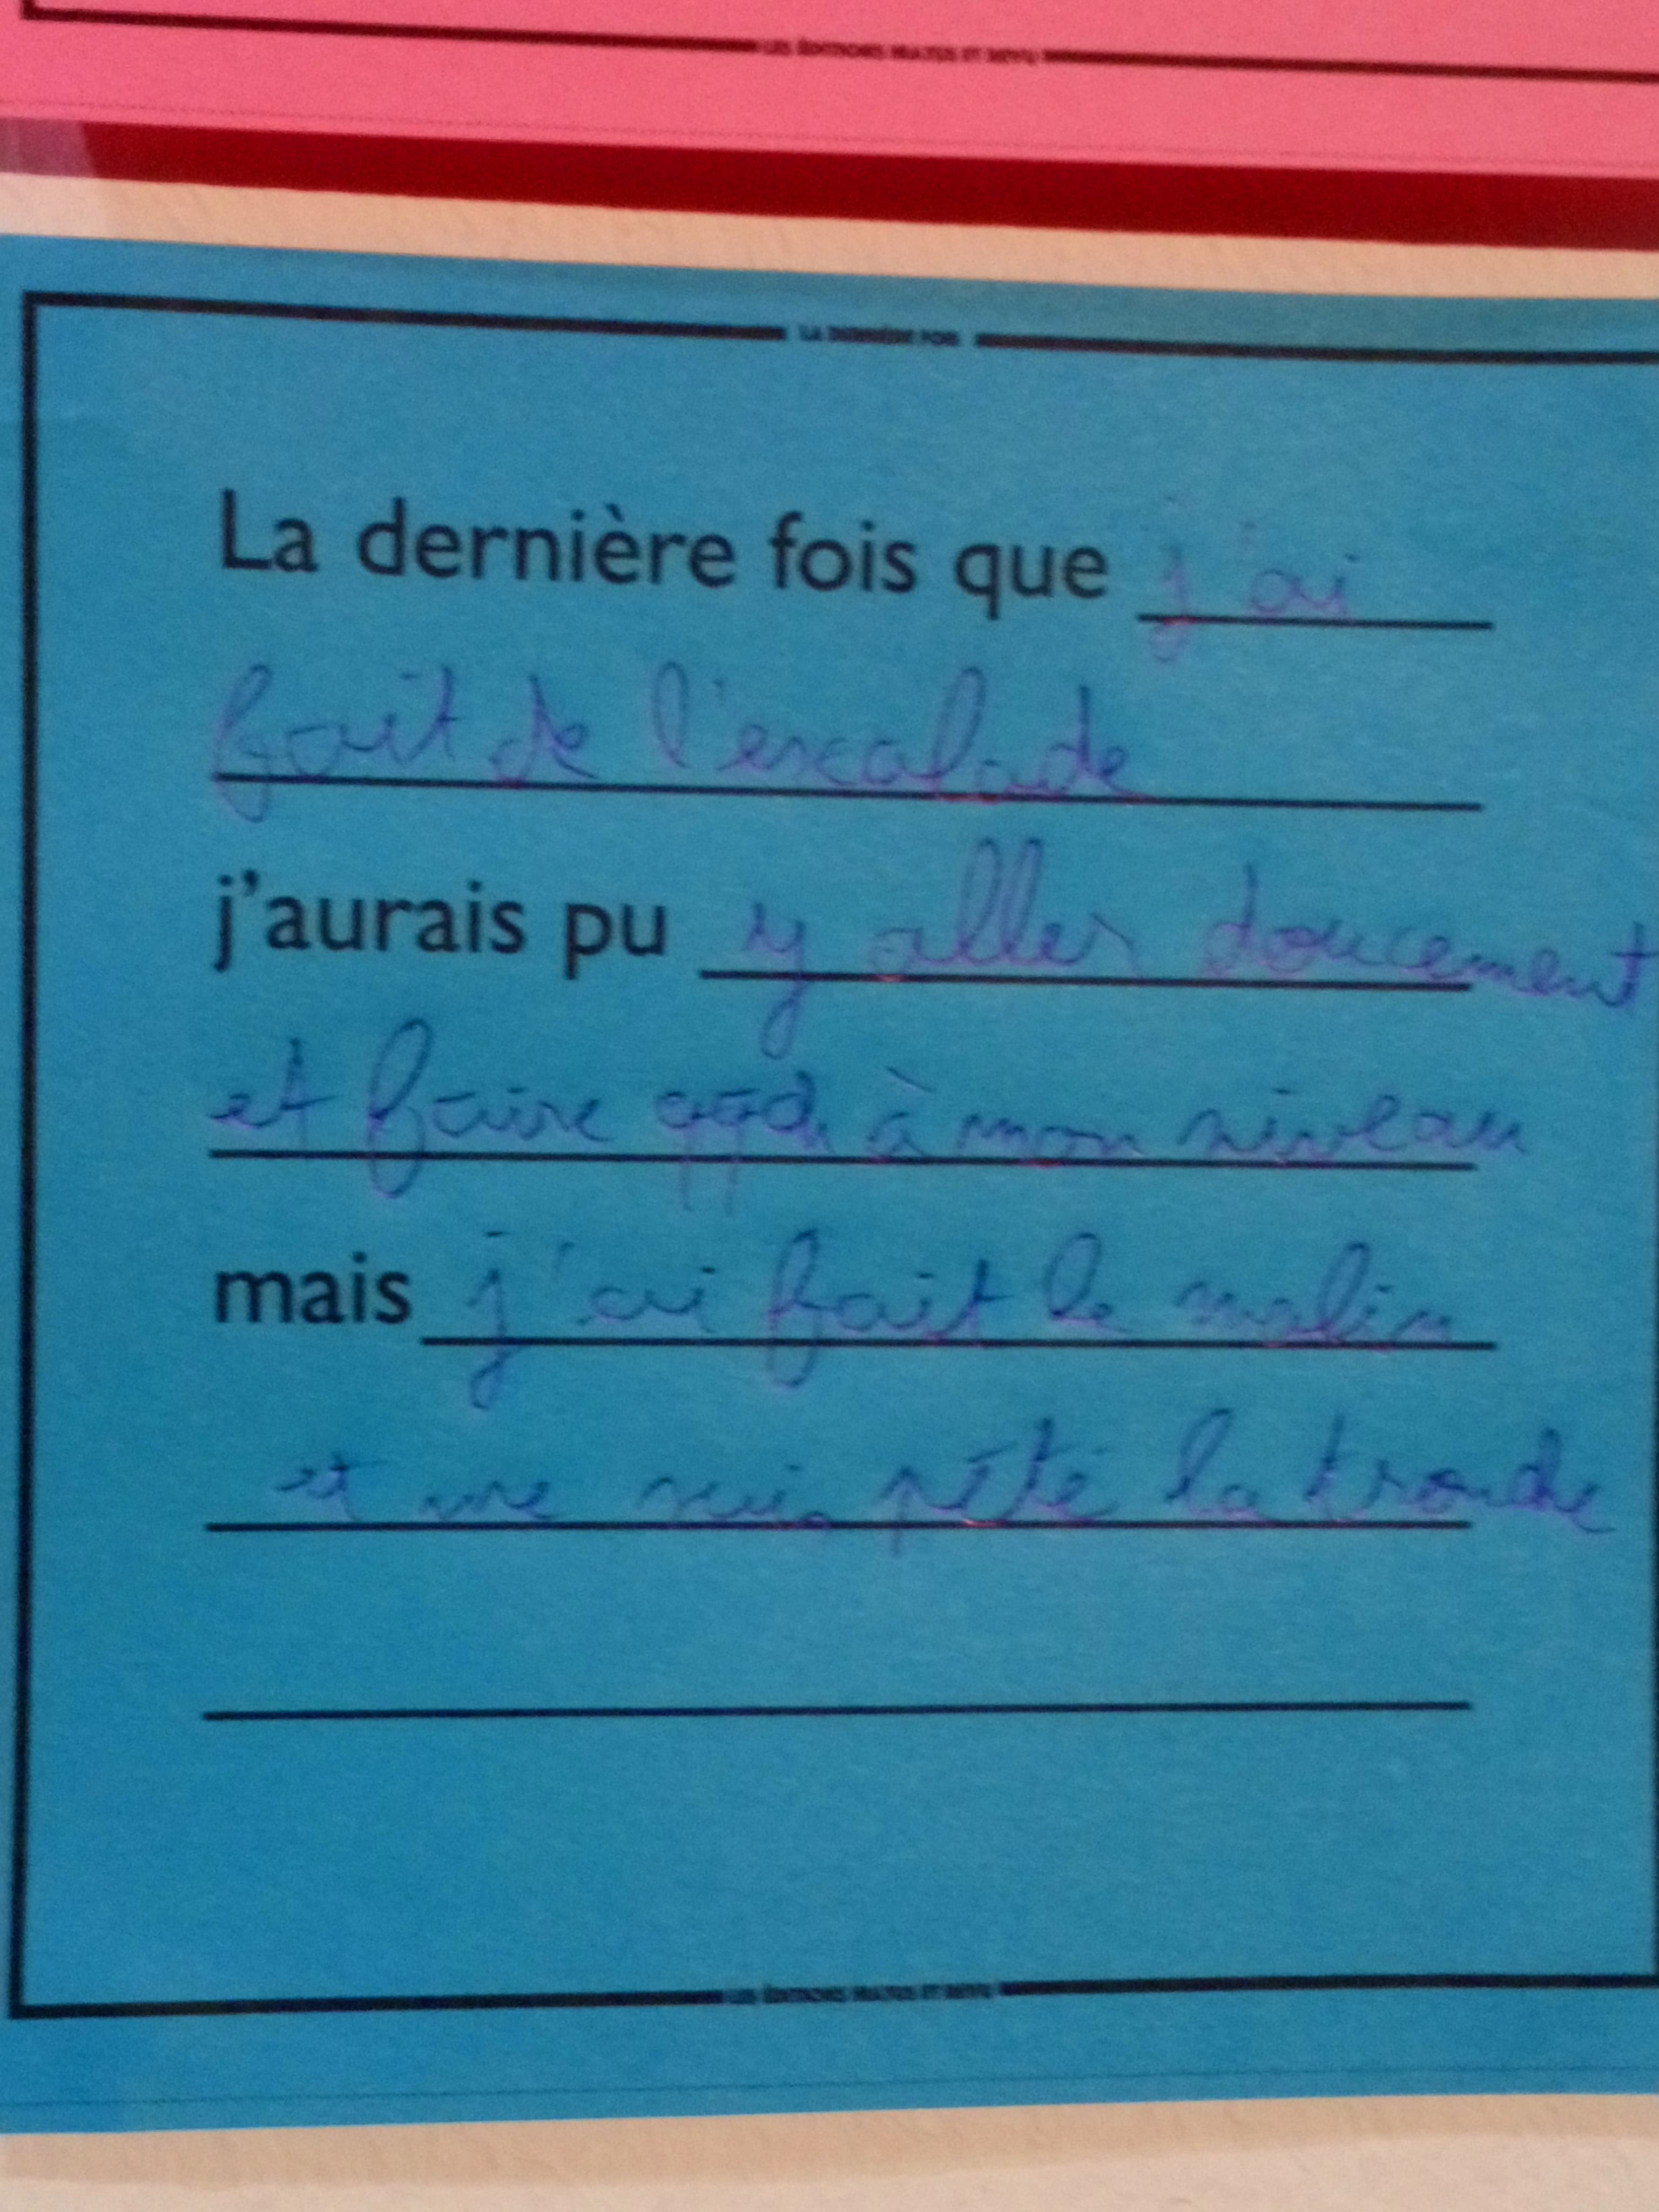 LES ÉDITIONS
LA DERNIÈRE FOIS
La dernière fois que j'ai
fait de l'escalade
j'aurais pu y aller doucement
et faire qqch à mon niveau
mais j'ai fait le malin
et me suis pété la tronche
LES ÉDITIONS